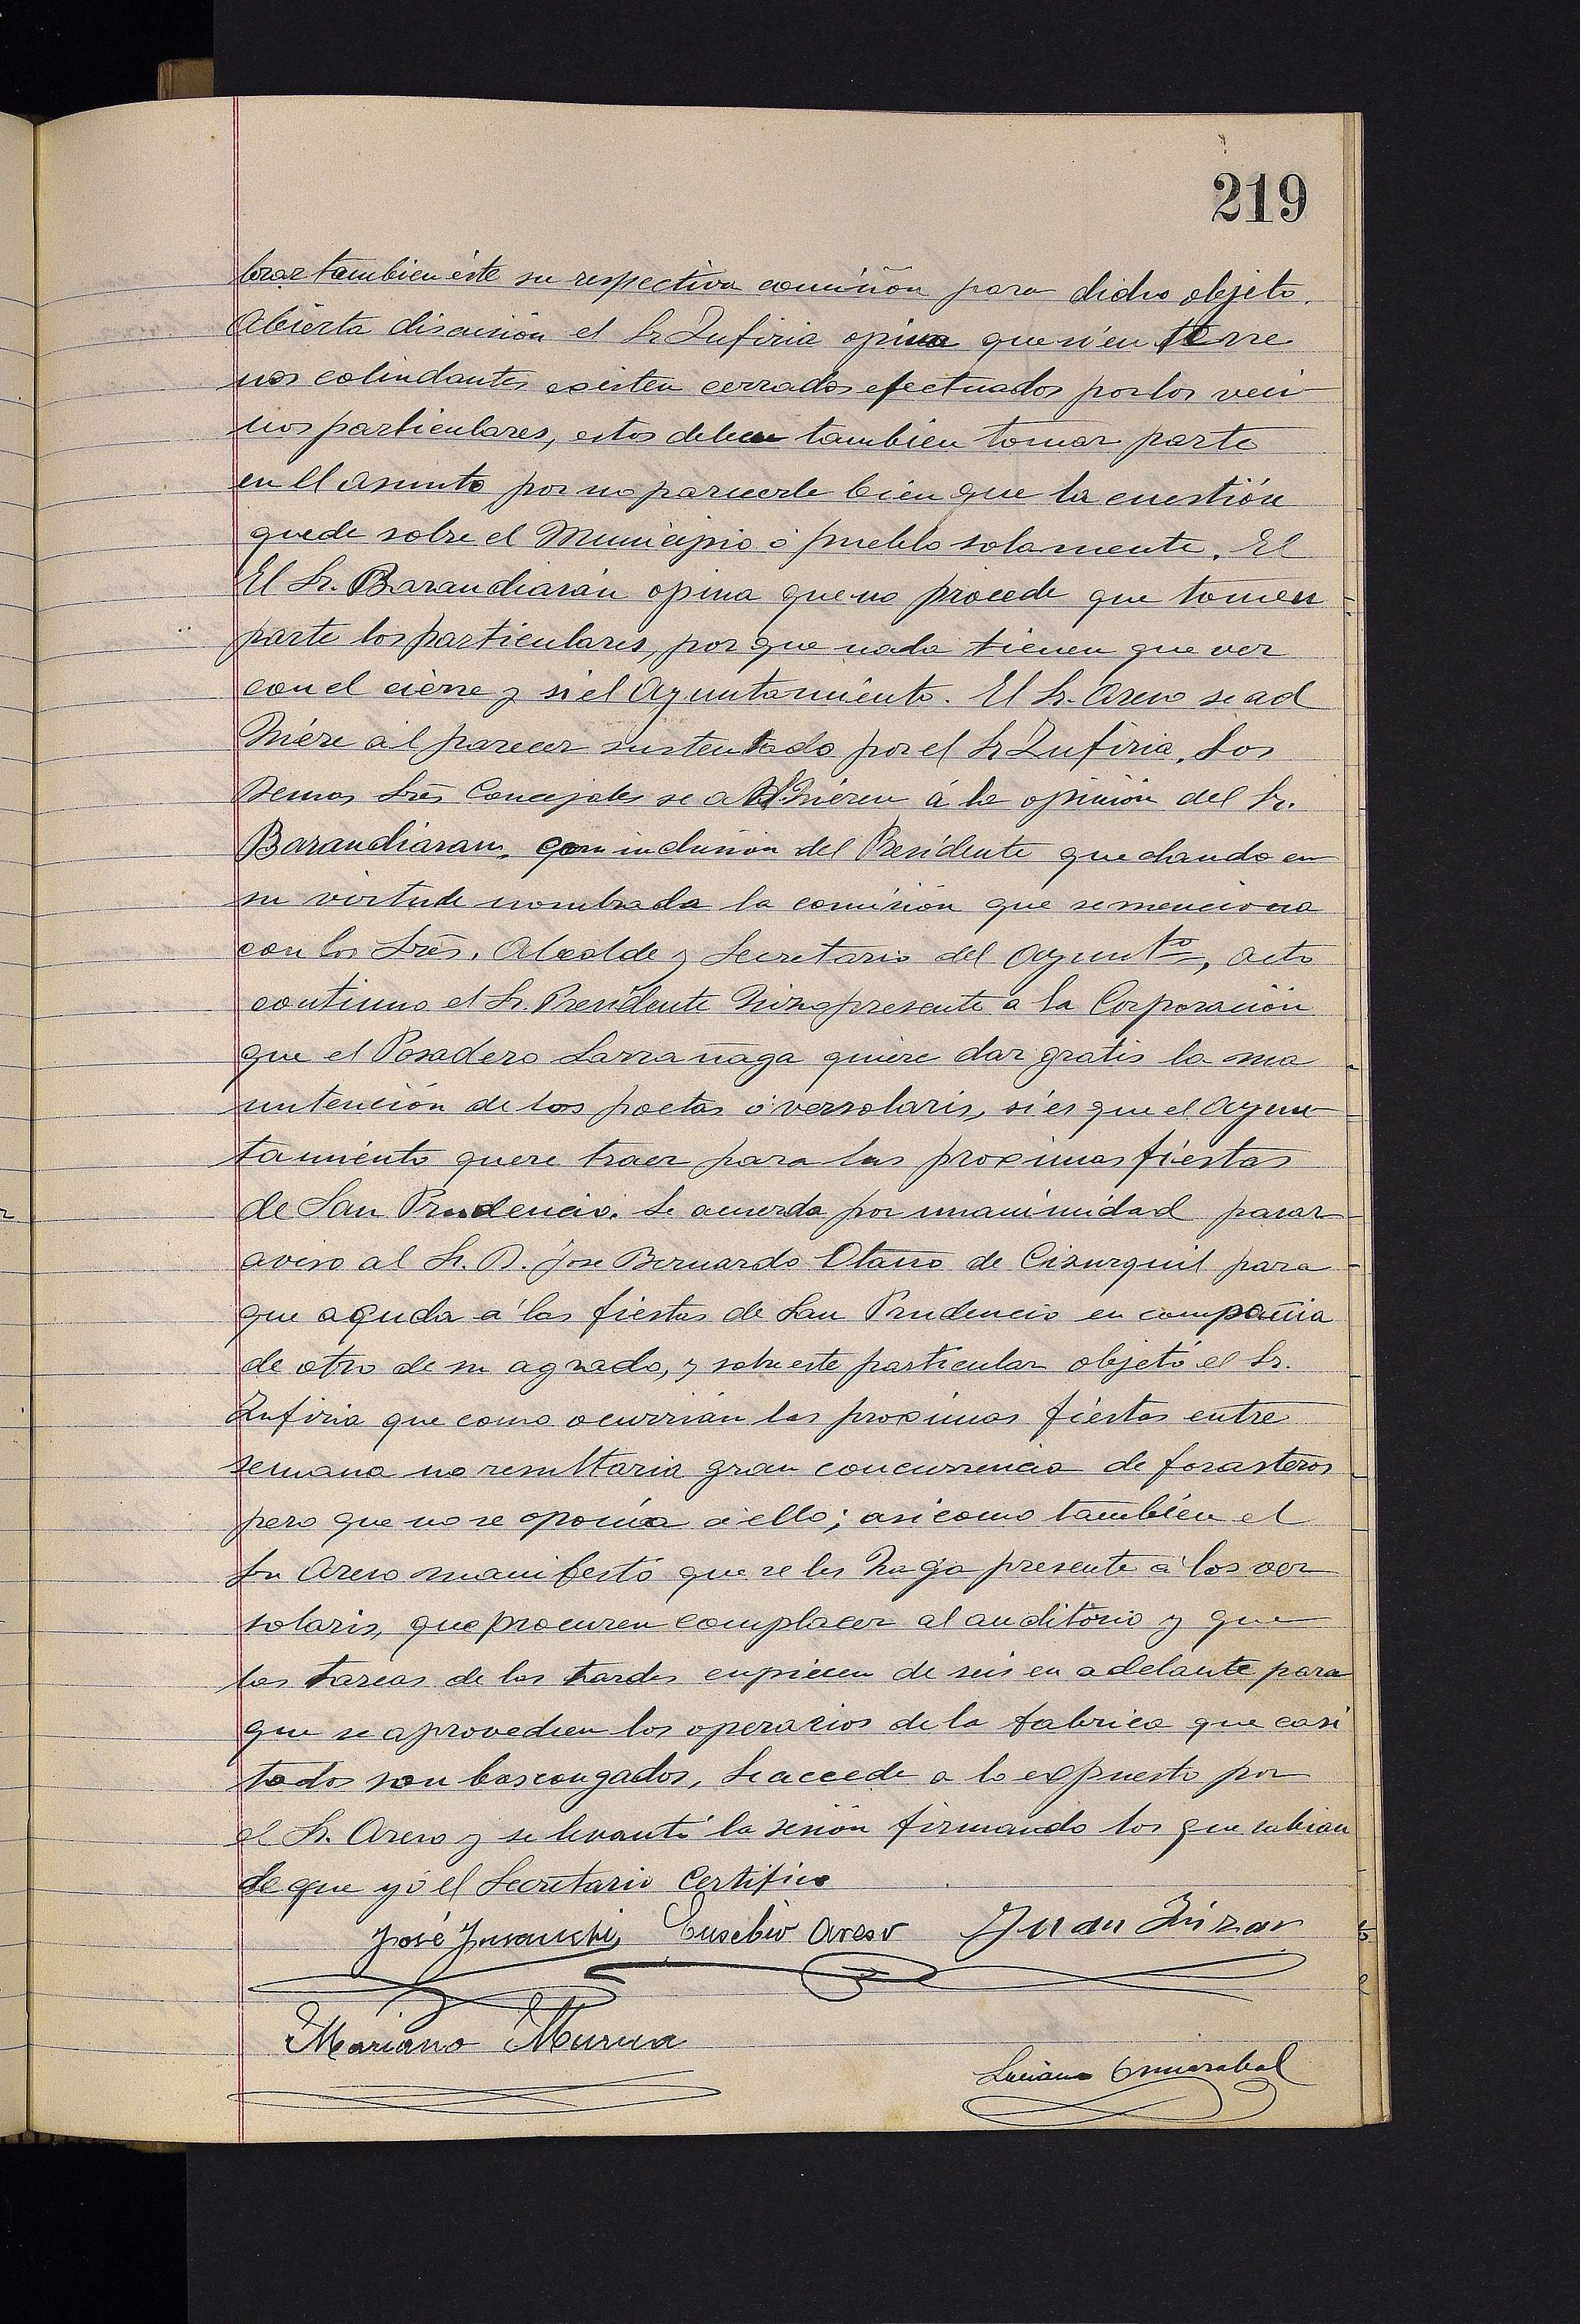 219
brar tambien éste su respectiva comisión para dicho objeto.
Abierta discusión el Sr Zufiria opina que si en terre
nos colindantes existen cerrados efectuados por los veci
nos particulares, estos deben tambien tomar parte
en el asunto por no parecerle bien que la cuestión
quede sobre el Municipio ó pueblo solamente. El
El Sr. Barandiarán opina que no procede que tomen
parte los particulares, por que nada tienen que ver
con el cierre y si el Ayuntamiento. El Sr. Areso se ad
hiere al parecer sustentado por el Sr Zufiria. Los
demas Sres Concejales se adhieren á la opinión del Sr.
Barandiaran, con inclusion del Presidente quedando en
su virtud nombrada la comisión que se menciona
con los Sres. Alcalde y Secretario del Ayunto, acto
continuo el Sr. Presidente hizo presente a la Corporación
que el Posadero Larrañaga quiere dar gratis la ma
nutención de los poetas ó versolaris, si es que el Ayun
tamiento quere traer para las proximas fiestas
de San Prudencio. Se acuerda por unanimidad pasar
aviso al Sr. D. Jose Bernardo Otaño de Cizurquil para
que acuda á las fiestas de San Prudencio en compañia
de otro de su agrado, y sobre este particular objetó el Sr.
Zufiria que como ocurrian las proximas fiestas entre
semana no resultaria gran concurrencia de forasteros
pero que no se oponia á ello; asi como también el
Sr Areso manifestó que se les haga presente á los ver
solaris, que procuren complacer al auditorio y que
las tareas de las tardes empiecen de seis en adelante para
que se aprovechen los operarios de la fabrica que casi
todos son bascongados, Se accede a lo expuesto por
el Sr. Areso y se levantó la sesión firmando los que sabian
de que yó el Secretario Certifico
José Eusebio Areso Juan
Mariano Murua
Luciano